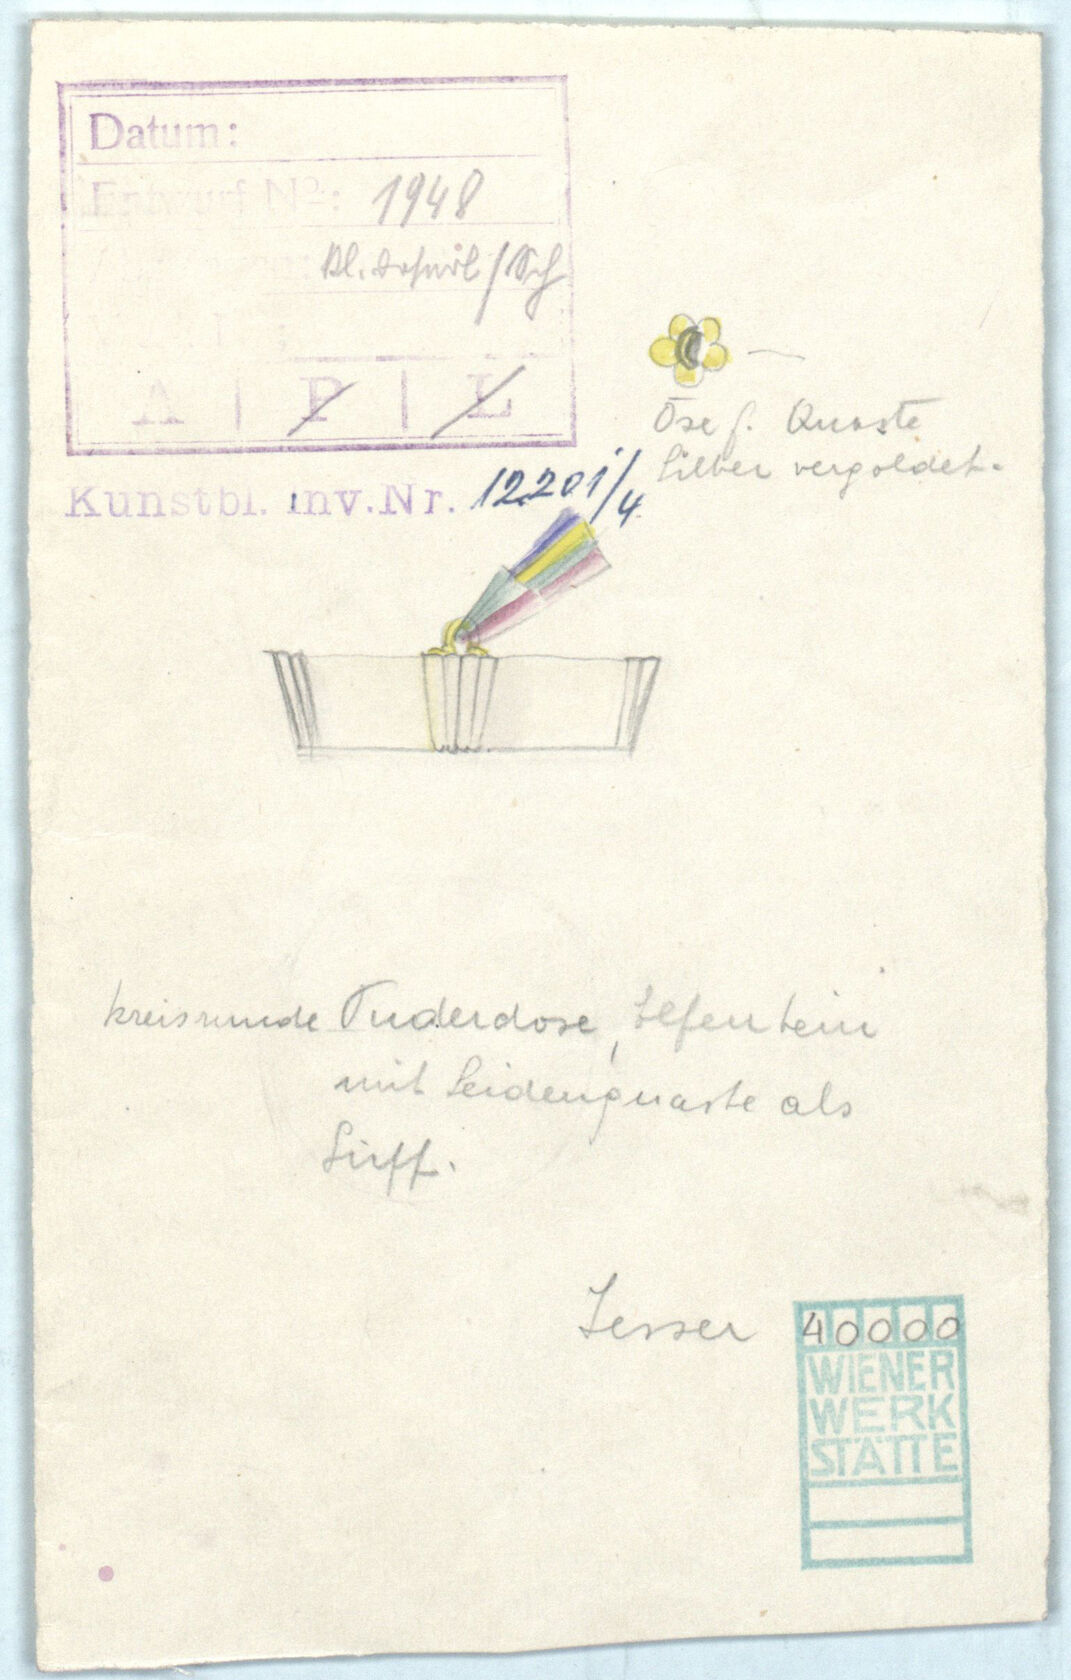 Datum:
Entwurf Nº: 1948
A | P | L
Öse f. Quaste
Silber vergoldet.
Kunstbl. Inv.Nr. 12201/4
kreisrunde Puderdose, Elfenbein
mit Seidenquaste als
Griff.
Lesser
40000
WIENER
WERK
STÄTTE